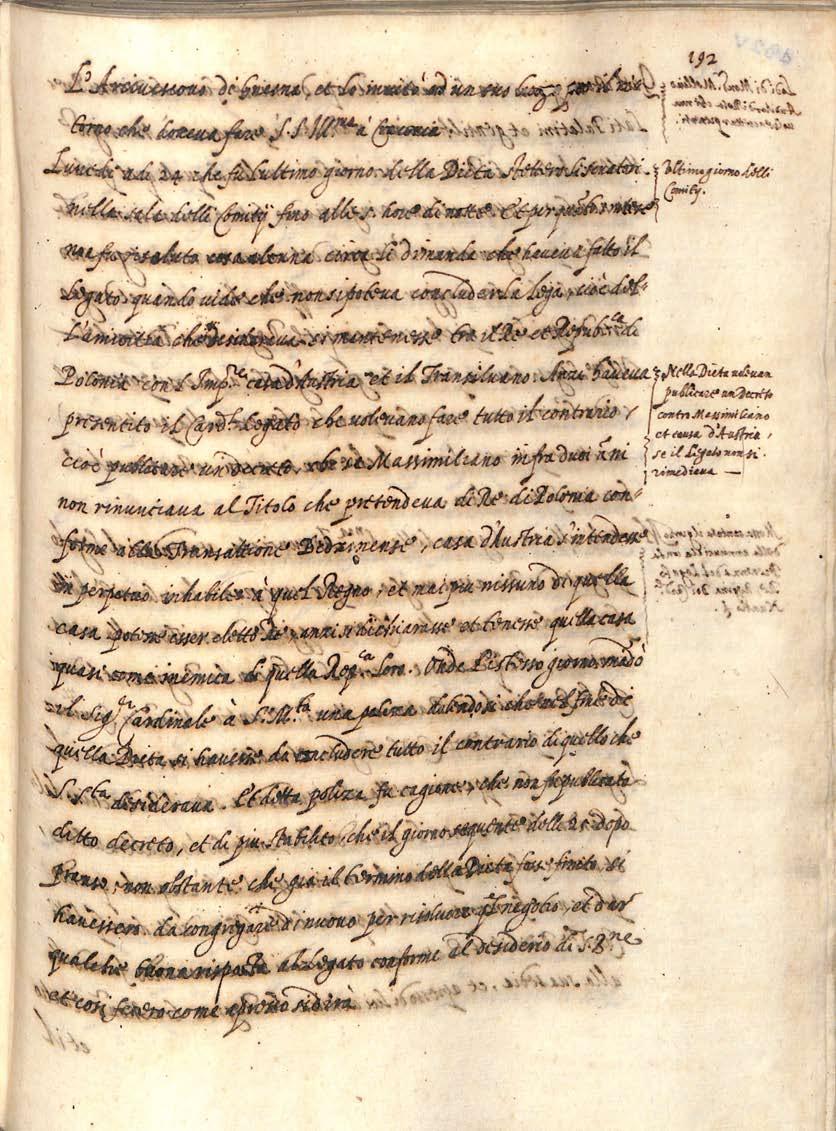 192
L'Arcivescovo di Gnesna, et lo invitò ad un suo luogo per il ri-
torno che doveva fare S. S. Ill.ma à Cracovia
Lunedi adi 24 che fù l'ultimo giorno della Dieta stettero li senatori
nella sala delli Comitij fino alle 5. hore di notte. Et per questo
non fu resoluto cosa alcuna circa la dimanda che haveva fatto il
Legato quando vidde che non si poteva concluder la lega, cioè del-
l'amicitia che desiderava si mantenesse tra il Re et Republ.ca di
Polonia con l'Imp.re casa d'Austria et il Transilvano. Anzi haveva
presentito il Card.l Legato che volevano fare tutto il contrario,
cioè publicare un decreto, che se Massimiliano infra duoi anni
non rinunciava al Titolo che pretendeva di Re di Polonia con-
forme alla Transattione Bedzinense, casa d'Austria s'intendesse
in perpetuo inhabile à quel Regno, et mai piu nissuno di quella
casa potesse esser eletto Re, anzi si dichiarasse et tenesse quella casa
quasi come inimica di quella Rep.ca loro. Onde l'istesso giorno mandò
il Sig.r Cardinale à S. M.tà una poliza dolendosi che nel fine di
quella Dieta si havesse da concludere tutto il contrario di quello che
S. S.tà desiderava. Et detta poliza fu cagione, che non fu publicato
ditto decreto, et di piu stabilito, che il giorno sequente delli 25 dopo
Pranso, non obstante che già il termino della Dieta fusse finito, si
havessero da congregare di nuovo per risolvere q.l negotio, et dar
qualche buona risposta al Legato conforme al desiderio di S. B.ne
et cosi fecero come apresso si dirà
et il
Ultimo giorno delli
Comitij.
Nella Dieta volevan
publicare un Decreto
contro Massimiliano
et causa d'Austria,
se il Legato non ci
rimediava